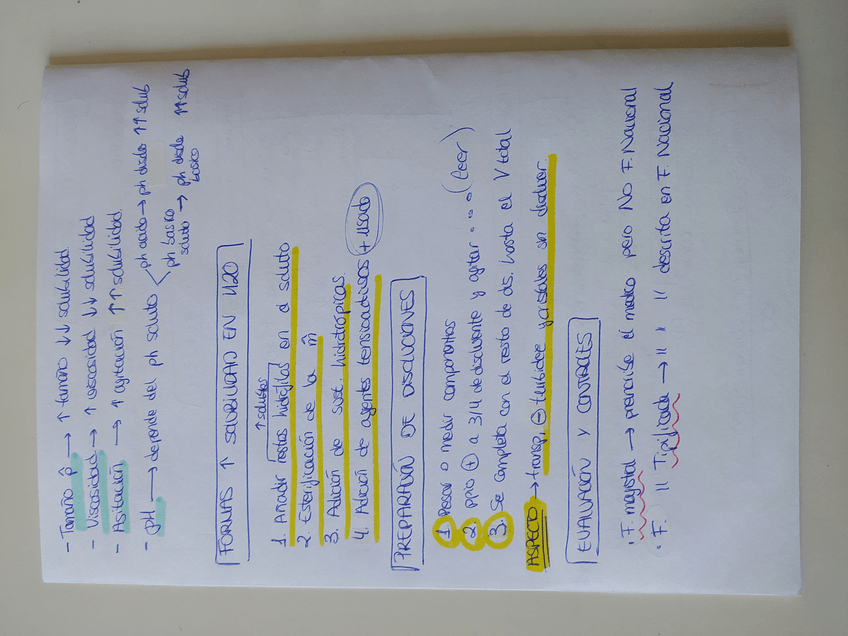 - Tamaño p̂ → ↑ tamaño ↓↓ solubilidad
- Viscosidad → ↑ viscosidad ↓↓ solubilidad
- Agitación → ↑ agitación ↑↑ solubilidad
- pH → depende del ph soluto < ph acido → ph disolv ↑↑ solub
ph basico soluto → ph disolv basico ↑↑ solub
FORMAS ↑ SOLUBILIDAD EN H2O
↑ solutos
1. Añadir restos hidrófilos en a soluto
2. Esterificación de la m̂
3. Adición de sust. hidrotrópicas
4. Adición de agentes tensioactivos + usado
PREPARACIÓN DE DISOLUCIONES
1. Pesar o medir componentes
2. ppio ⊕ a 3/4 de disolvente y agitar ... (leer)
3. Se completa con el resto de dis. hasta el V total
ASPECTO → transp, ⊖ turbidez y cristales sin disolver
EVALUACIÓN Y CONTROLES
· F. magistral → prescribe el médico pero No F. Nacional
· F. " Tipificada → " " " descrita en F. Nacional